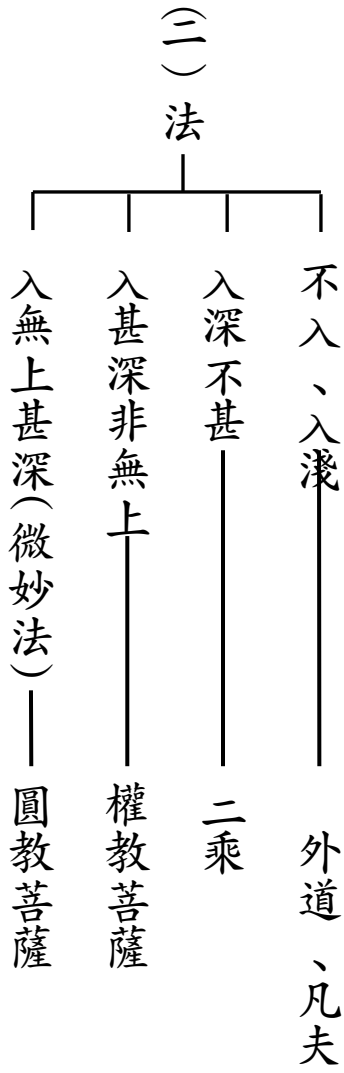 (二)法
不入、入淺 外道、凡夫
入深不甚 二乘
入甚深非無上 權教菩薩
入無上甚深(微妙法) 圓教菩薩